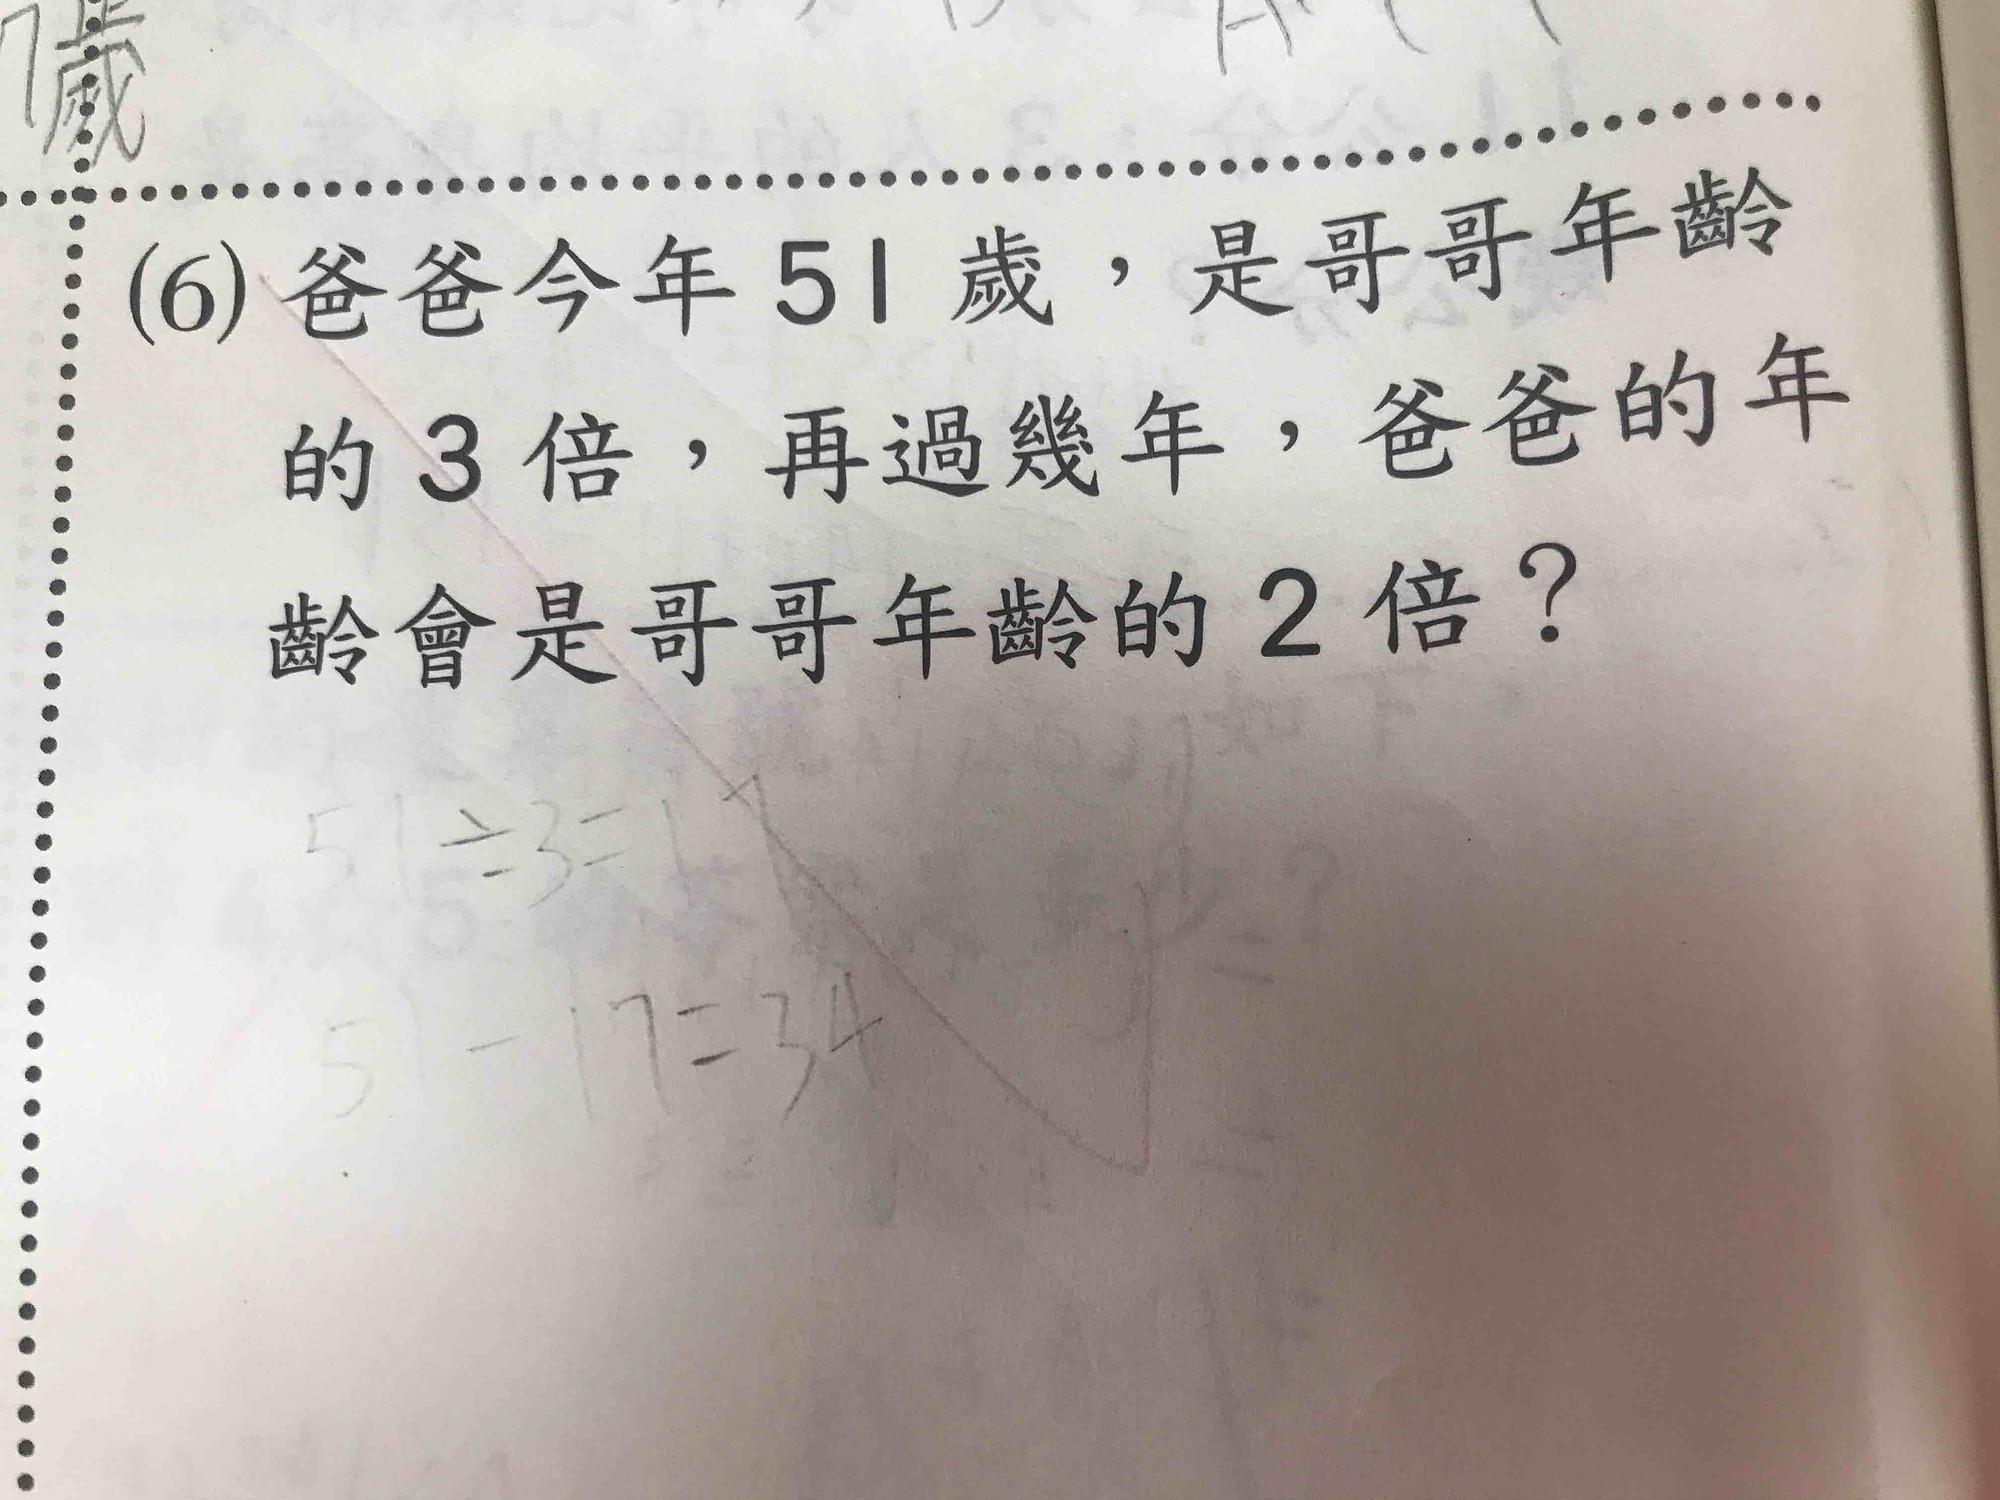 7歲
(6) 爸爸今年 51 歲，是哥哥年齡
的 3 倍，再過幾年，爸爸的年
齡會是哥哥年齡的 2 倍？
51÷3=17
51-17=34